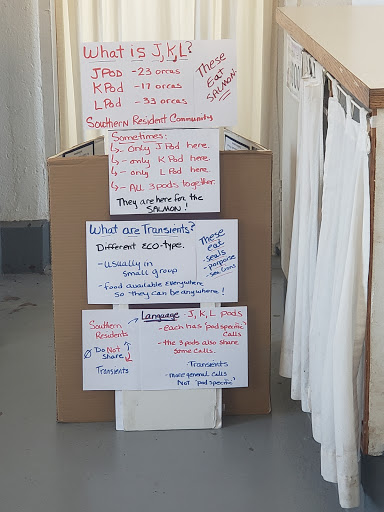 What is J,K,L?
J Pod - 23 orcas
K Pod - 17 orcas
L Pod - 33 orcas
These
Eat
SALMON!
Southern Resident Community
Sometimes:
↳ - Only J Pod here.
↳ - only K Pod here.
↳ - only L Pod here.
↳ - ALL 3 pods together.
They are here for the
SALMON!
What are Transients?
Different Eco-type.
- usually in
small group
- food available everywhere
so they can be anywhere!
These
eat
- seals
- porpoise
- sea lions
Language - J, K, L pods
- each has "pod specific"
calls
- the 3 pods also share
some calls.
- Transients
- more general calls
Not "pod specific"
Southern
Residents
Do Not
Share
Transients